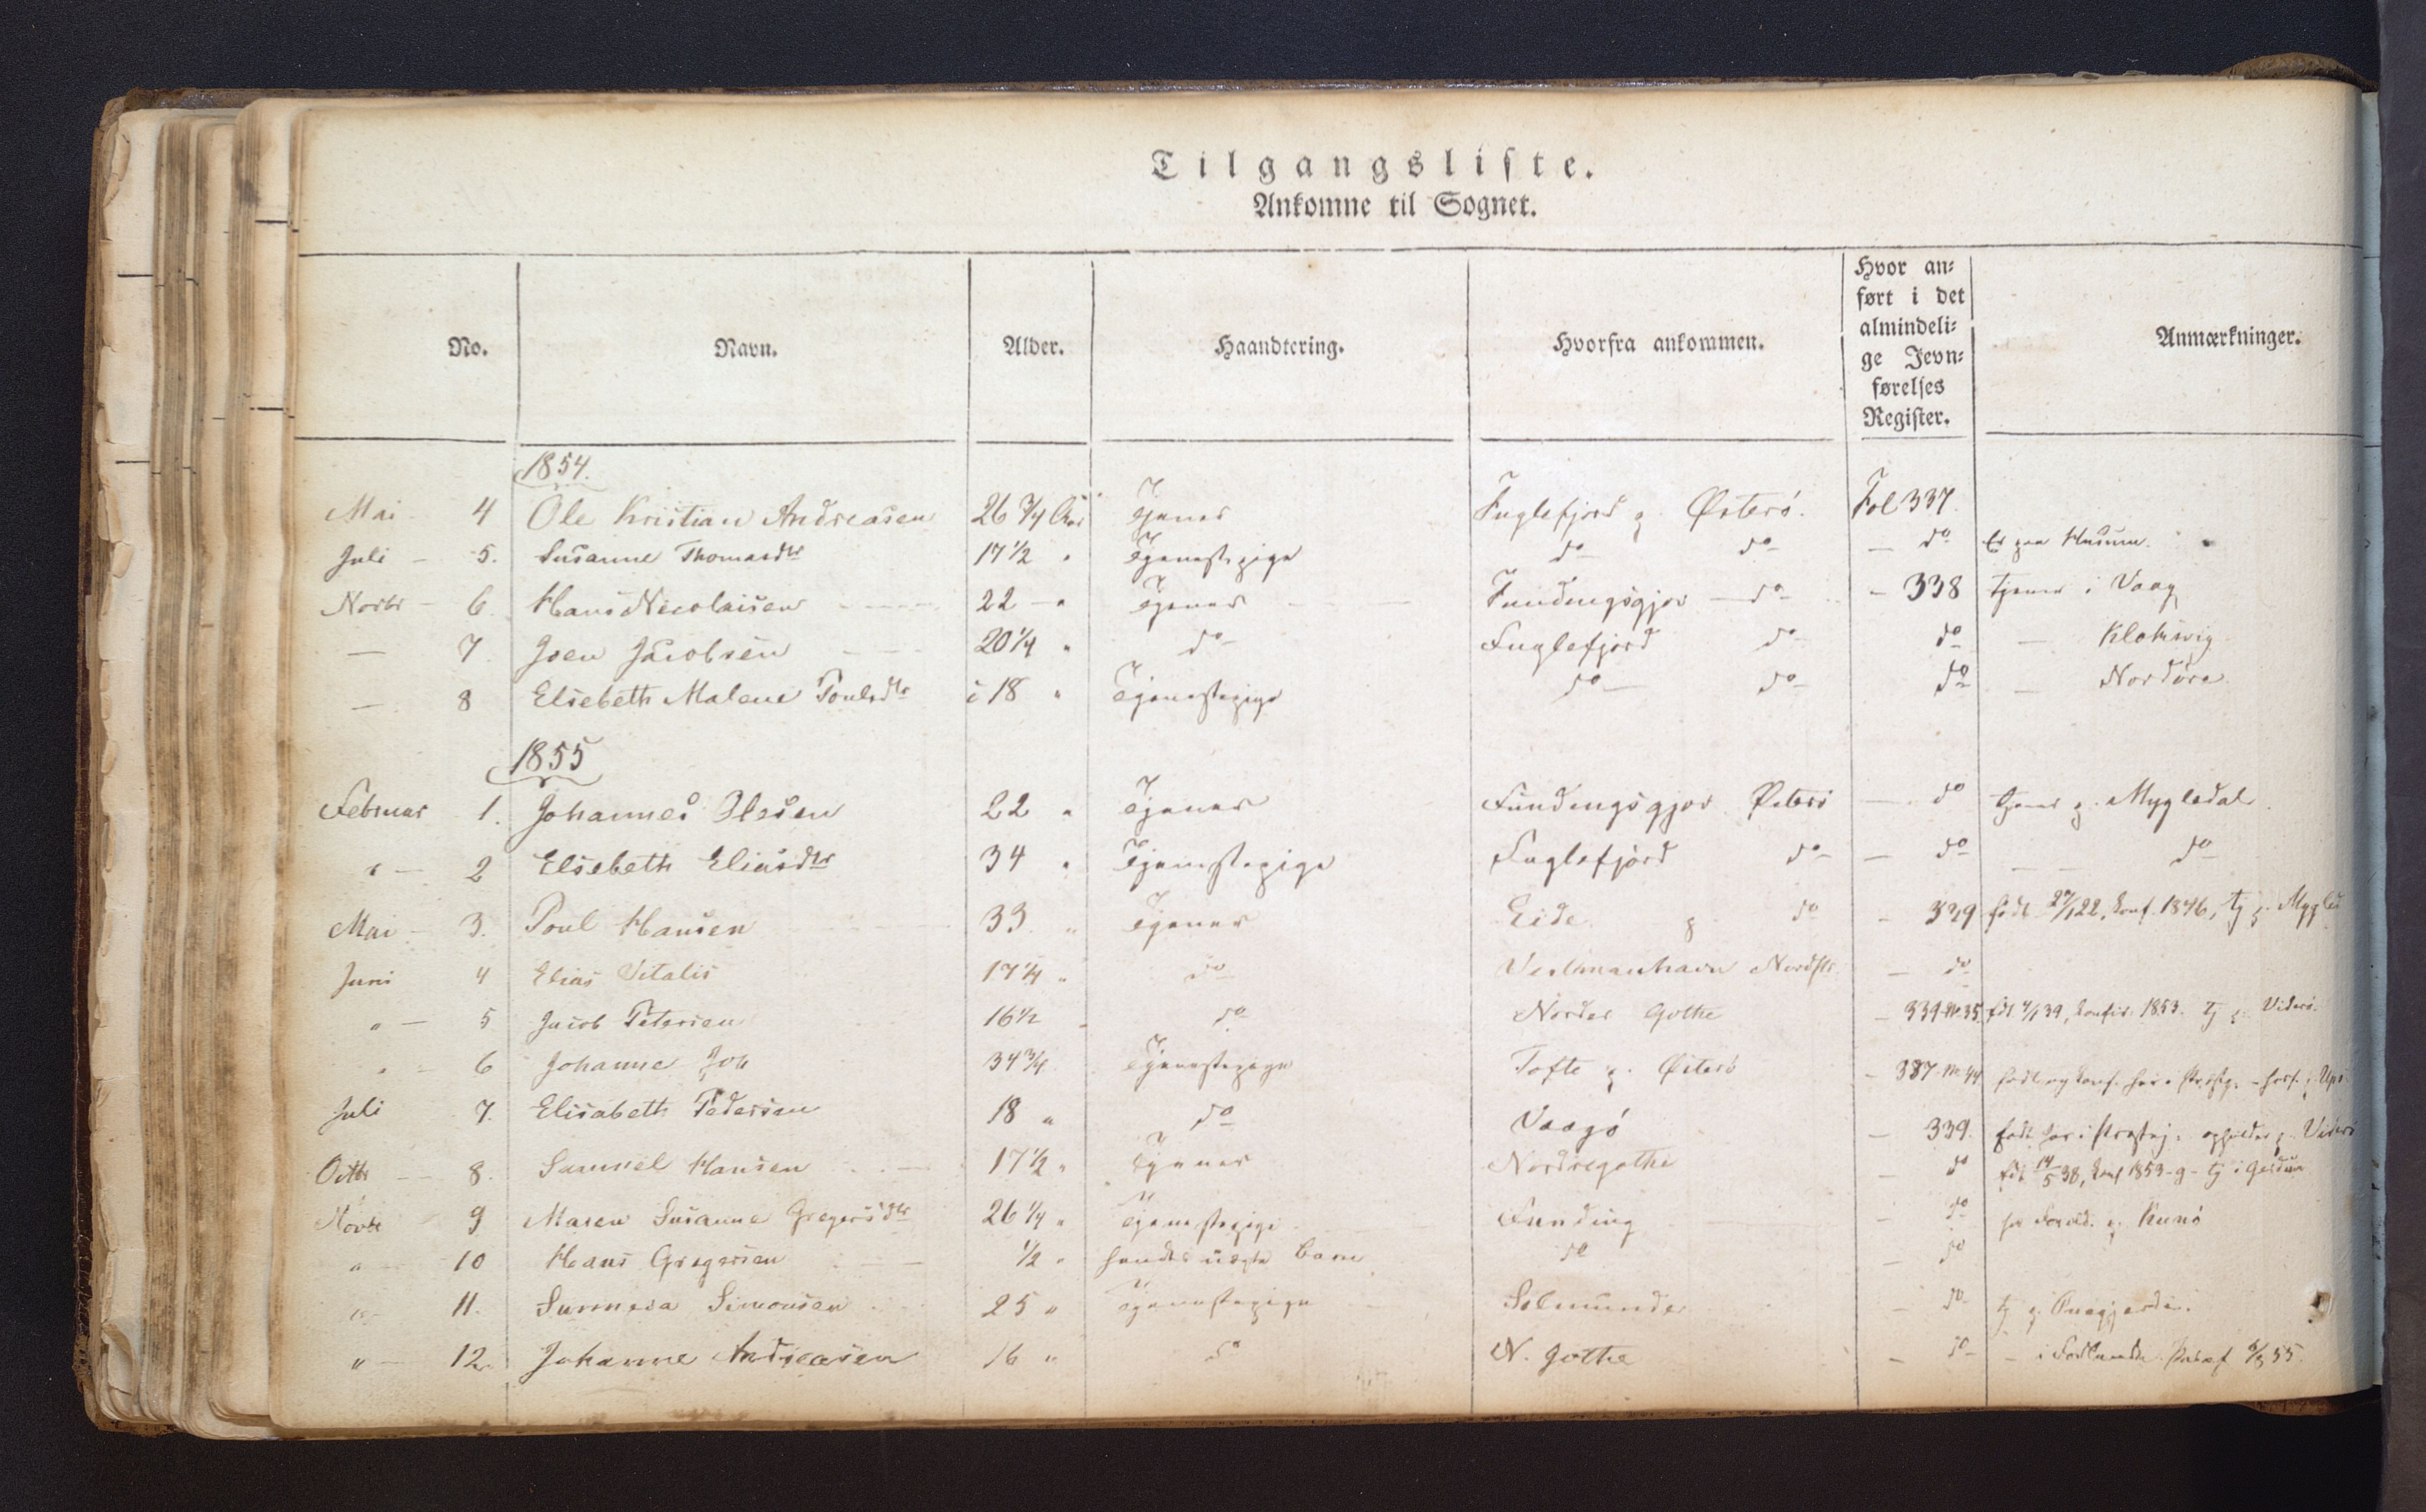 Tilgangsliste.
Ankomne til Sognet.
No. Navn. Alder. Haandtering. Hvorfra ankommen. Hvor an= ført i det almindeli= ge Jevn= førelses Register. Anmærkninger.
1854.
Mai 4 Ole Kristian Andreasen 26 3/4 Aar Tjener Fuglefjord p. Østerö. Fol 337.
Juli - 5. Susanne Thomasdtr 17 1/2 " Tjenestepige do do - do Er paa Husum.
Novbr - 6. Hans Nicolaisen 22 - " Tjener Fundingsgjov - do - 338 tjener i Vaag
— 7. Joen Jacobsen 20 1/4 " do Fuglefjord do do — Klaksvig
— 8 Elsebeth Malene Poulsdtr i 18 " Tjenestepige do do do — Nordöre
1855
Februar 1. Johannes Olesen 22 " Tjener Fundingsgjov Österö — do tjener p. Mygledal
" — 2 Elsebeth Eliasdtr 34 " Tjenestepige Fuglefjord do — do — — do
Mai - 3. Poul Hansen 33 " Tjener Eide p do - 339 født 22, konf. 1846, tj p. Mygled
Juni 4 Elias Vitalis 17 1/4 " do Vestmanhavn Nordstr. — do
" — 5 Jacob Petersen 16 1/2 do Nordre Gothe — 339 No 35 fdt 39, konfir. 1853. tj p. Viderö.
" - 6 Johanne Joh 34 3/4 Tjenestepige Tofte p. Österö - 387 No 44 født og konf. her i
Juli 7. Elisabeth Pedersen 18 " do Vaagö — 339. født her i opholder p. Viderö
Octbr — 8. Samuel Hansen 17 1/2 " Tjener Nordregothe — do fdt 14/5 38, konf 1853 - tj i
Novbr 9 Maren Susanne Gregersdtr 26 1/4 " Tjenestepige Funding — do p. Kunö
" 10 Hans Gregersen 1/2 " hendes uægte Barn do — do
" 11. Sunneva Simonsen 25 " Tjenestepige Selmunde — do tj p.
" — 12. Johanne Andreasen 16 " do N. Gothe — do — i 55.